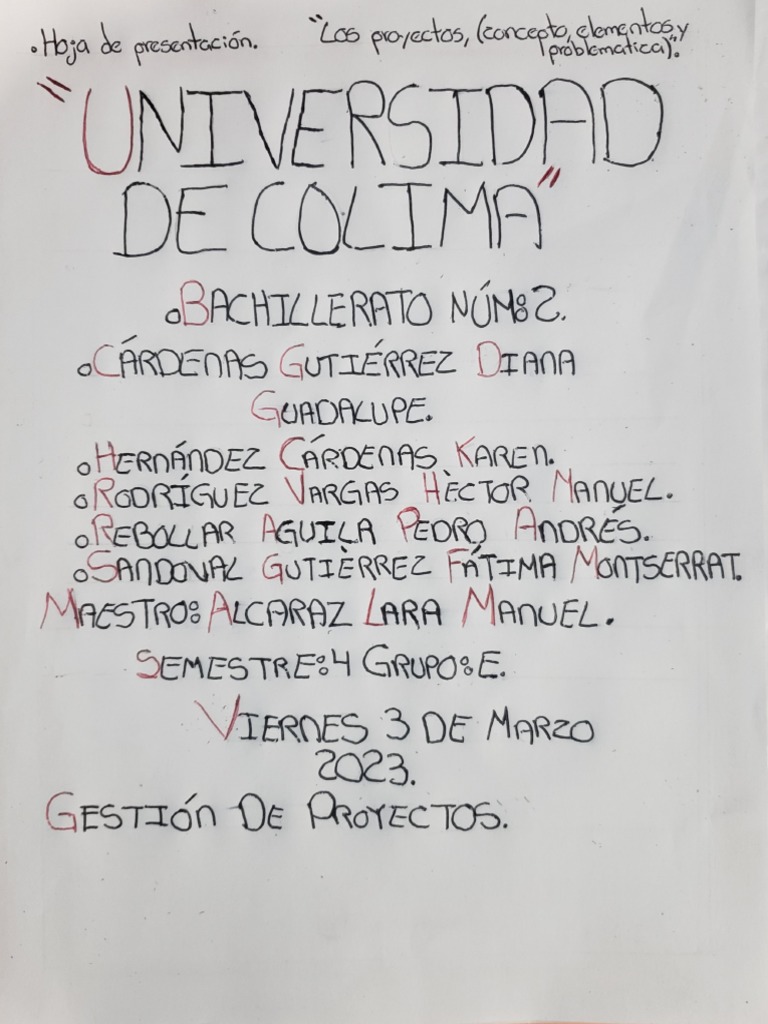 •Hoja de presentación.
"Los proyectos, (concepto, elementos, y
problematica)".
"UNIVERSIDAD
DE COLIMA"
•BACHILLERATO NÚM:2.
•CÁRDENAS GUTIÉRREZ DIANA
GUADALUPE.
•HERNÁNDEZ CÁRDENAS KAREN.
•RODRÍGUEZ VARGAS HÈCTOR MANUEL.
•REBOLLAR AGUILA PEDRO ANDRÉS.
•SANDOVAL GUTIÈRREZ FÁTIMA MONTSERRAT.
MAESTRO: ALCARAZ LARA MANUEL.
SEMESTRE:4 GRUPO:E.
VIERNES 3 DE MARZO
2023.
GESTIÓN DE PROYECTOS.